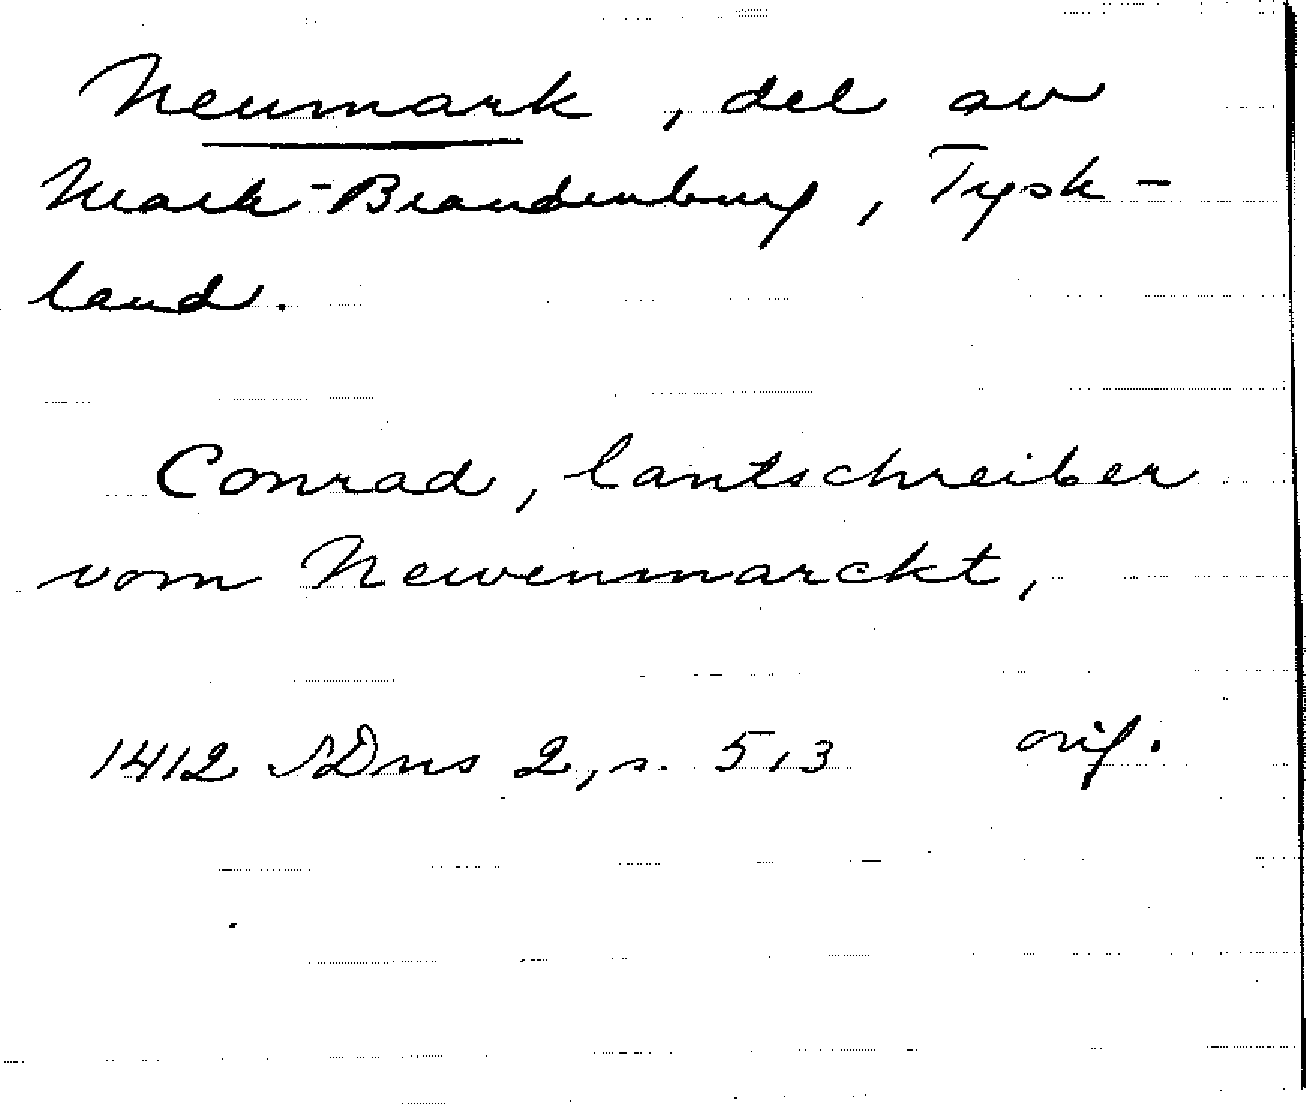 Neumark, del av
Mark-Brandenburg, Tysk-
land.
Conrad, lantschreiber
vom Newenmarckt,
1412 SDns 2, s. 513 orig.